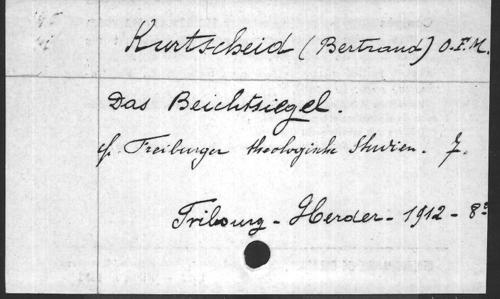 Kurtscheid (Bertrand) O.F.M.
Das Beichtsiegel.
f. Freiburger theologische Studien. 7.
Fribourg - Herder - 1912 - 8°